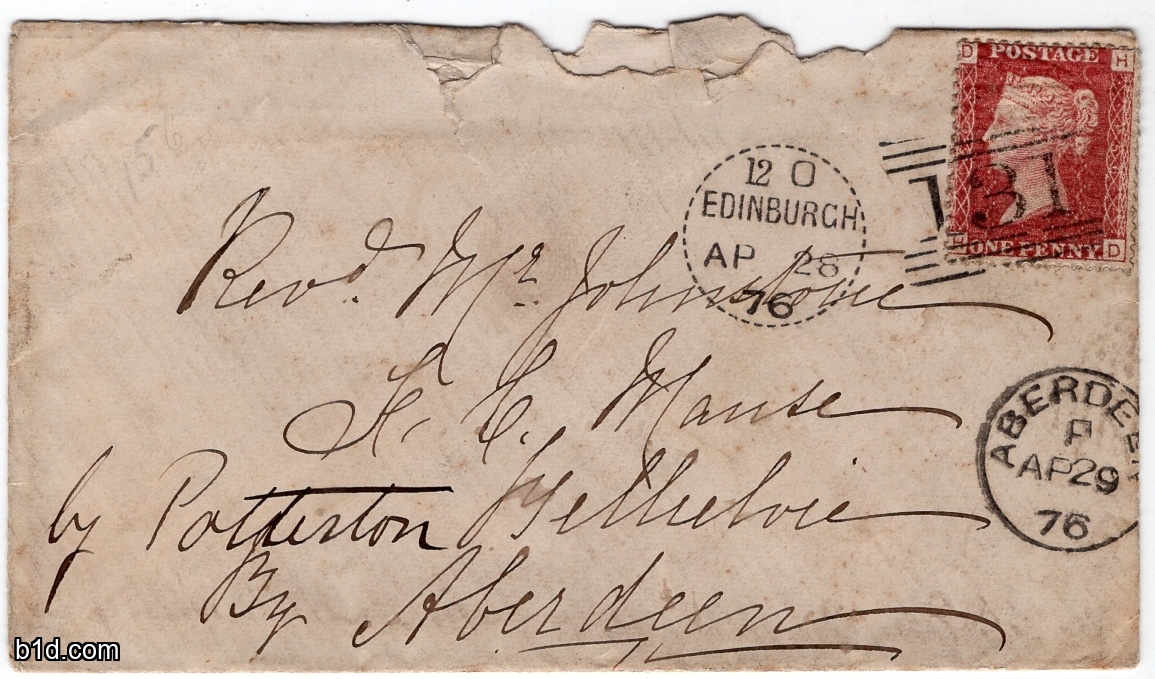 D POSTAGE H
131
H ONE PENNY D
12 O
EDINBURGH
AP 28
76
Revd. Mr. Johnstone
F. C. Manse
by Potterston Belhelvie
By Aberdeen
ABERDEEN
P
AP 29
76
b1d.com